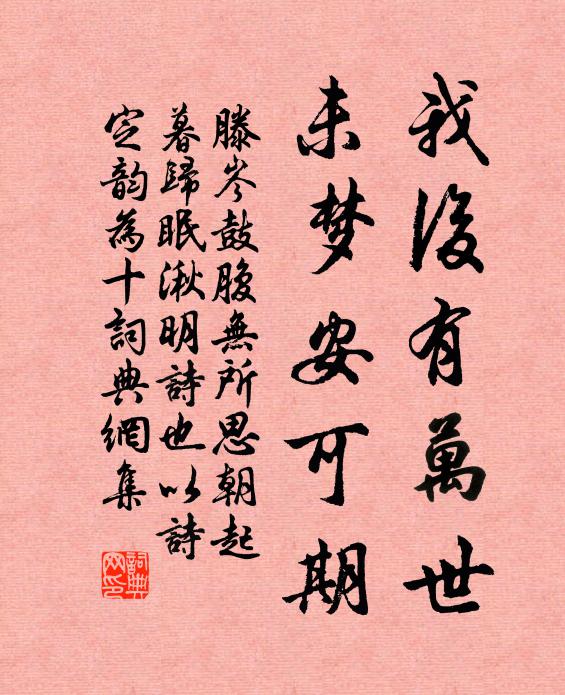 我後有萬世
未梦安可期
滕岑鼓腹無所思朝起
暮歸眠湫明詩也以詩
定韵為十詞典網集
詞典网印